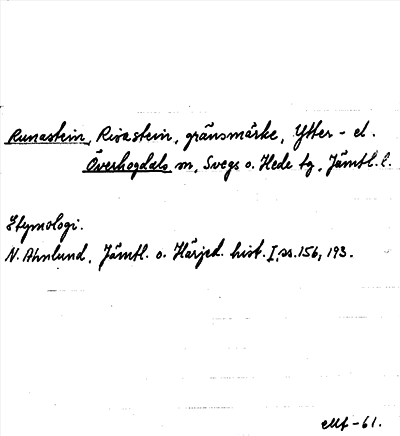 Runastein, Rivastein, gränsmärke, Ytter- el.
Överhogdals sn, Svegs o. Hede tg, Jämtl. l.
Etymologi.
N. Ahnlund, Jämtl. o. Härjed. hist. I, ss. 156, 193.
-61.